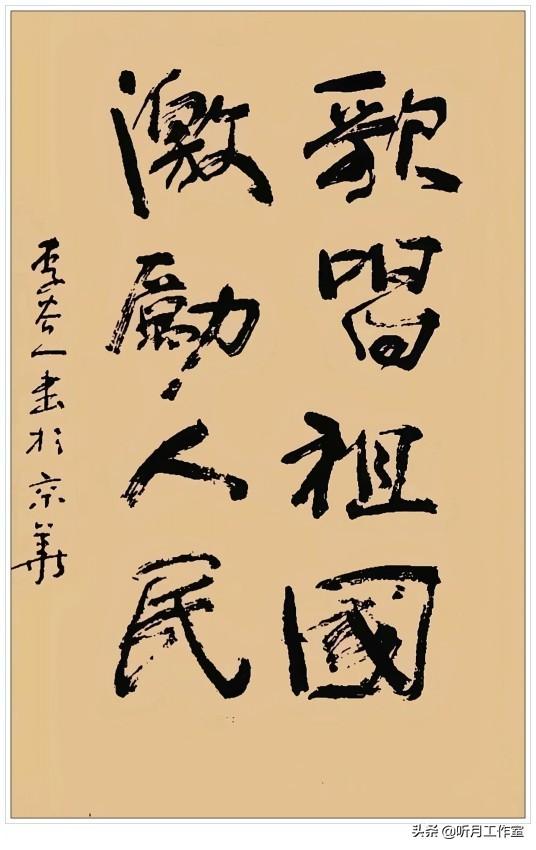 歌唱祖國
激勵人民
李谷人書於京華
头条 @听月工作室